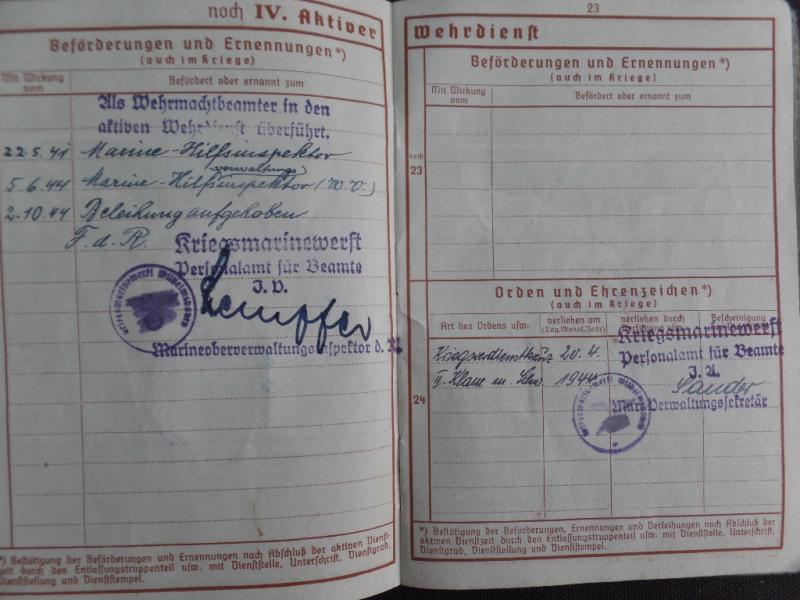 noch IV. Aktiver
Beförderungen und Ernennungen*)
(auch im Kriege)
Mit Wirkung vom
Befördert oder ernannt zum
Als Wehrmachtbeamter in den
aktiven Wehrdienst überführt.
22.5.41 Marine-Hilfsinspektor
verwaltungs
5.6.44 Marine-Hilfsinspektor (m.V.)
2.10.44 Beleihung aufgehoben
F. d. R.
Kriegsmarinewerft
Personalamt für Beamte
J. V.
Kriegsmarinewerft Wilhelmshaven
Marineoberverwaltungsinspektor d. R.
*) Bestätigung der Beförderungen und Ernennungen nach Abschluß der aktiven Dienst-
zeit durch den Entlassungstruppenteil usw. mit Dienststelle, Unterschrift, Dienstgrad,
Dienststellung und Dienststempel.
23
Wehrdienst
Beförderungen und Ernennungen*)
(auch im Kriege)
Mit Wirkung vom
Befördert oder ernannt zum
noch
23
Orden und Ehrenzeichen*)
(auch im Kriege)
Art des Ordens usw.
verliehen am
(Tag, Monat, Jahr)
verliehen durch
Bescheinigung
Kriegsmarinewerft
Kriegsverdienstkreuz 20.4.
Personalamt für Beamte
J. A.
II. Klasse m. Schw. 1944
Sander
24
Mar.-Verwaltungssekretär
Kriegsmarinewerft Wilhelmshaven
*) Bestätigung der Beförderungen, Ernennungen und Verleihungen nach Abschluß der
aktiven Dienstzeit durch den Entlassungstruppenteil usw. mit Dienststelle, Unterschrift,
Dienstgrad, Dienststellung und Dienststempel.